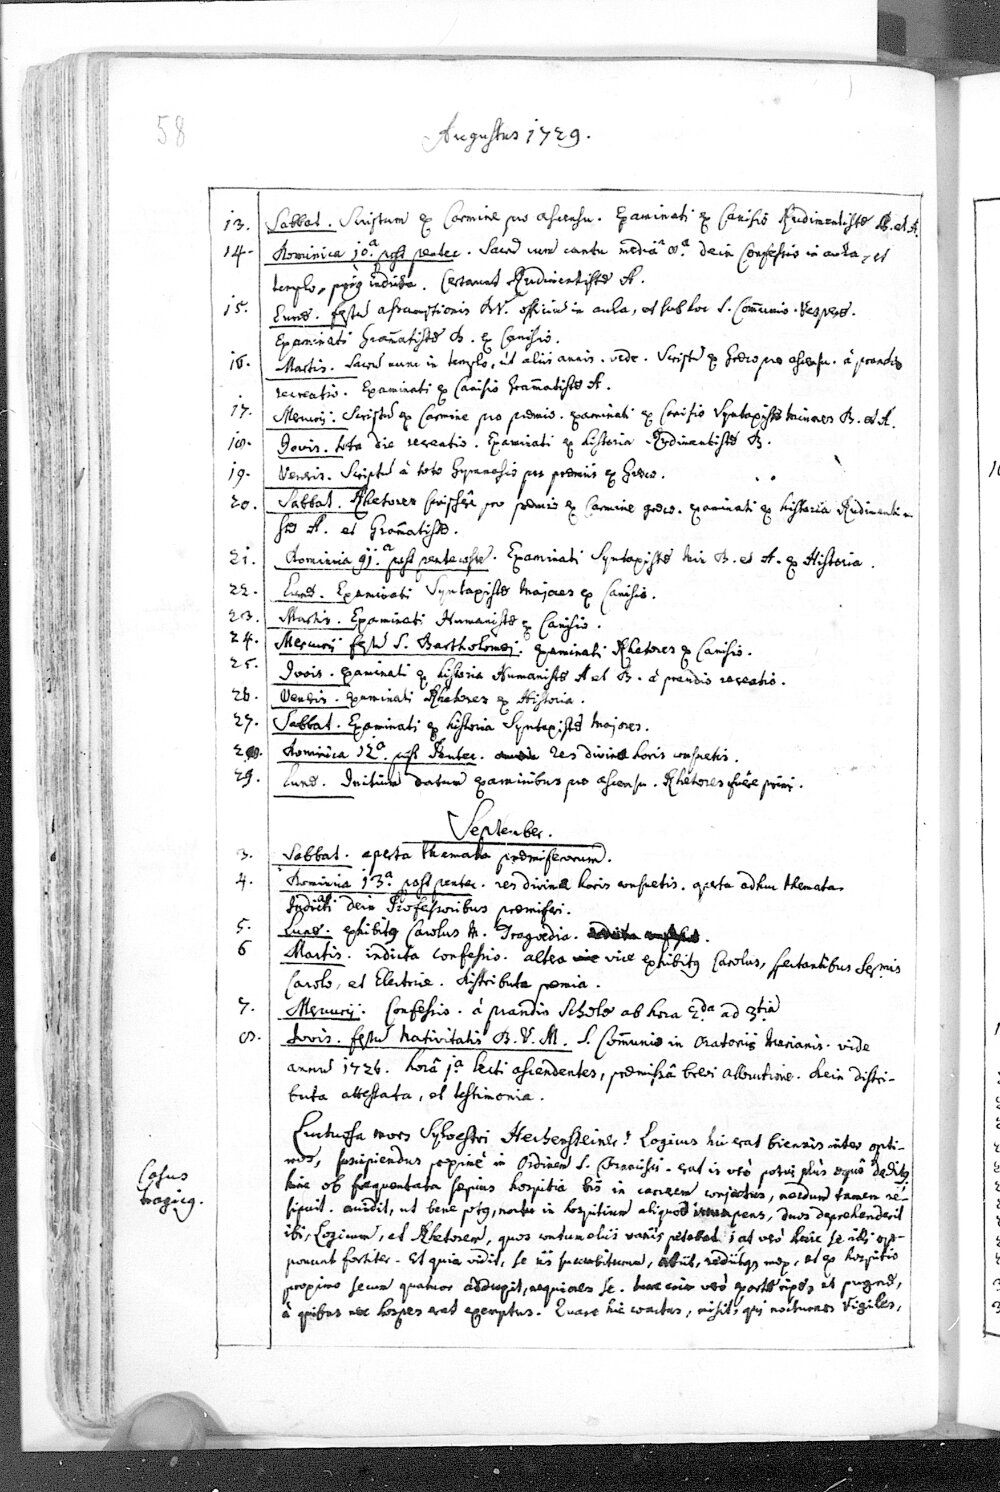 58
Augustus 1729.
13. Sabbat. Scriptum ex Carmine pro ascensu. Examinati ex Canisio Rudimentistae B. et A.
14. Dominica 10.a post pentec. Sacrū cum cantu mediâ 8.a dein Confessio in aula, et
templo, indicta. Certarunt Rudimentistae A.
15. Lunae. festū assumptionis B.V. officiū in aula, et sub hoc S. Com̄unio. Vesperae.
Examinati Gram̄atistae B. ex Canisio.
16. Martis. Sacrū nunc in templo, ut aliis annis. vide. Scriptū ex Graeco pro ascensu. à prandio
recreatio. Examinati ex Canisio Gram̄atistae A.
17. Mercurij. Scriptū ex Carmine pro praemio. examinati ex Canisio Syntaxistae minores B. et A.
18. Jovis. tota die recreatio. Examinati ex historia Rudimentistae B.
19. Veneris. Scriptū à toto Gymnasio pro praemiis ex Graeco.
20. Sabbat. Rhetores scripserū pro praemio ex Carmine graeco. examinati ex historia Rudimenti-
stae A. et Gram̄atistae.
21. Dominica 11.a post pentecoste. Examinati Syntaxistae Min B. et A. ex Historia.
22. Lunae. Examinati Syntaxistae Majores ex Canisio.
23. Martis. Examinati Humanistae ex Canisio.
24. Mercurij festū S. Bartholomaei. examinati Rhetores ex Canisio.
25. Jovis. examinati ex historia Humanistae A et B. à prandio recreatio.
26. Veneris. examinati Rhetores ex Historia.
27. Sabbat. Examinati ex historia Syntaxistae Majores.
28. Dominica 12a. post Pentec. res divinae horis consuetis.
29. Lunae. Initium datum examinibus pro ascensu. Rhetores fuēre primi.
September.
3. Sabbat. aperta themata praemiferorum.
4. Dominica 13.a post pentec. res divinae horis consuetis. aperta adhuc themata.
Indicti dein Professoribus praemiferi.
5. Lunae. exhibitg Carolus M. Tragoedia.
6 Martis. indicta confessio. altera vice exhibitg Carolus, spectantibus Sermis
Carolo, et Electrice. distributa praemia.
7. Mercurij. Confessio. à prandio Scholae ab hora 2da ad 3tiā
8. Jovis. festū Nativitatis B. V. M. S. Com̄unio in Oratoriis Marianis. vide
annū 1726. horâ 1.a lecti ascendentes, praemissâ brevi allocutione. dein distri-
buta attestata, et testimonia.
Casus
tragicg.
Luctuosa mors Sylvestri Herbensteiner! Logicus hic erat biennis inter opti-
mos, suscipiendus proximè in Ordinem S. erat is verò potui plus aequò deditg
hinc ob frequentata saepius hospitia bis in carcerem conjectus, necdum tamen re-
sipuit. accidit, ut bene potg, noctu in hospitium aliquod irrumpens, duos deprehenderit
ibi, Logicum, et Rhetorem, quos contumeliis variis petebat. at verò hîc se ibi op-
ponunt fortiter. et quia vidit, se iis succubiturum, abiit, rediitqz mox, et ex hospitio
proximo secum quatuor adduxit, nequiores se. et pugnae,
à quibus nec hospes erat exemptus. Quare hic coactus, misit, qui nocturnos vigiles,